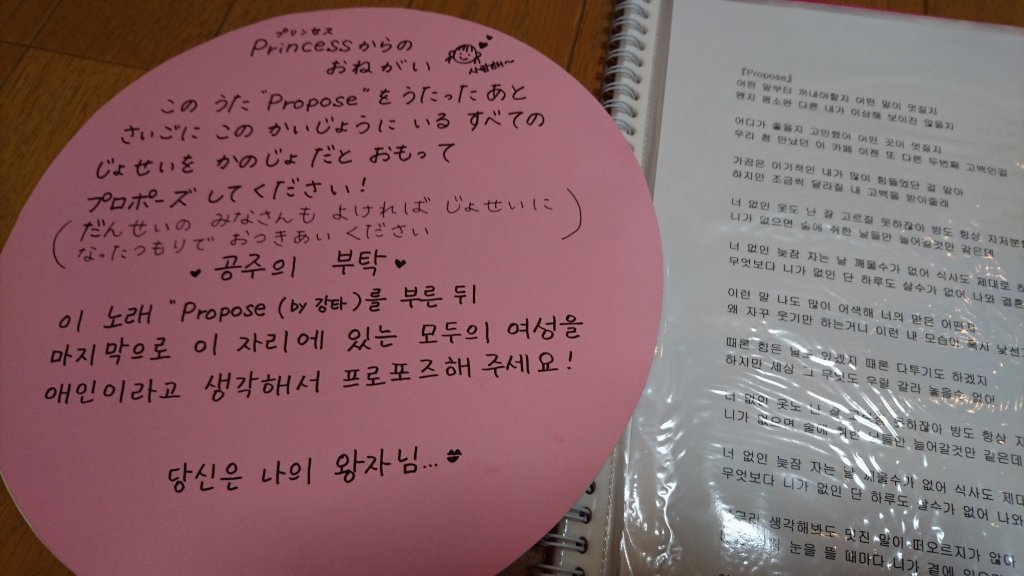 プリンセス
Princessからの
おねがい
사랑해~
この うた "Propose" を うたった あと
さいごに この かいじょうに いる すべての
じょせいを かのじょ だと おもって
プロポーズ してください!
(だんせいの みなさんも よければ じょせいに
なったつもりで おつきあい ください)
♥ 공주의 부탁 ♥
이 노래 "Propose (by 강타)를 부른 뒤
마지막으로 이 자리에 있는 모두의 여성을
애인이라고 생각해서 프로포즈해 주세요!
당신은 나의 왕자님...
『Propose』
어떤 말부터 꺼내야할지 어떤 말이 멋질지
왠지 평소완 다른 내가 이상해 보이진 않을지
어디가 좋을지 고민했어 어떤 곳이 멋질지
우리 첨 만났던 이 카페 이젠 또 다른 두번째 고백인걸
가끔은 이기적인 내가 많이 힘들었던 걸 알아
하지만 조금씩 달라질 내 고백을 받아줄래
너 없인 옷도 난 잘 고르질 못하잖아 방도 항상
니가 없으면 술에 취한 날들만 늘어갈것만 같은데
너 없인 늦잠 자는 날 깨울수가 없어 식사도 제대로
무엇보다 니가 없인 단 하루도 살수가 없어 나와
이런 말 나도 많이 어색해 너의 맘은 어떤지
왜 자꾸 웃기만 하는거니 이런 내 모습이 혹시
때론 힘든 날도 있겠지 때론 다투기도 하겠지
하지만 세상 그 무엇도 우릴 갈라 놓을수 없어
너 없인 옷도 난 잘 못하잖아 방도 항상
니가 없으면 술에 취한 날들만 늘어갈것만 같은데
너 없인 늦잠 자는 날 깨울수가 없어 식사도
무엇보다 니가 없인 단 하루도 살수가 없어
생각해봐도 멋진 말이 떠오르지가 않아
눈을 뜰 때마다 니가 곁에